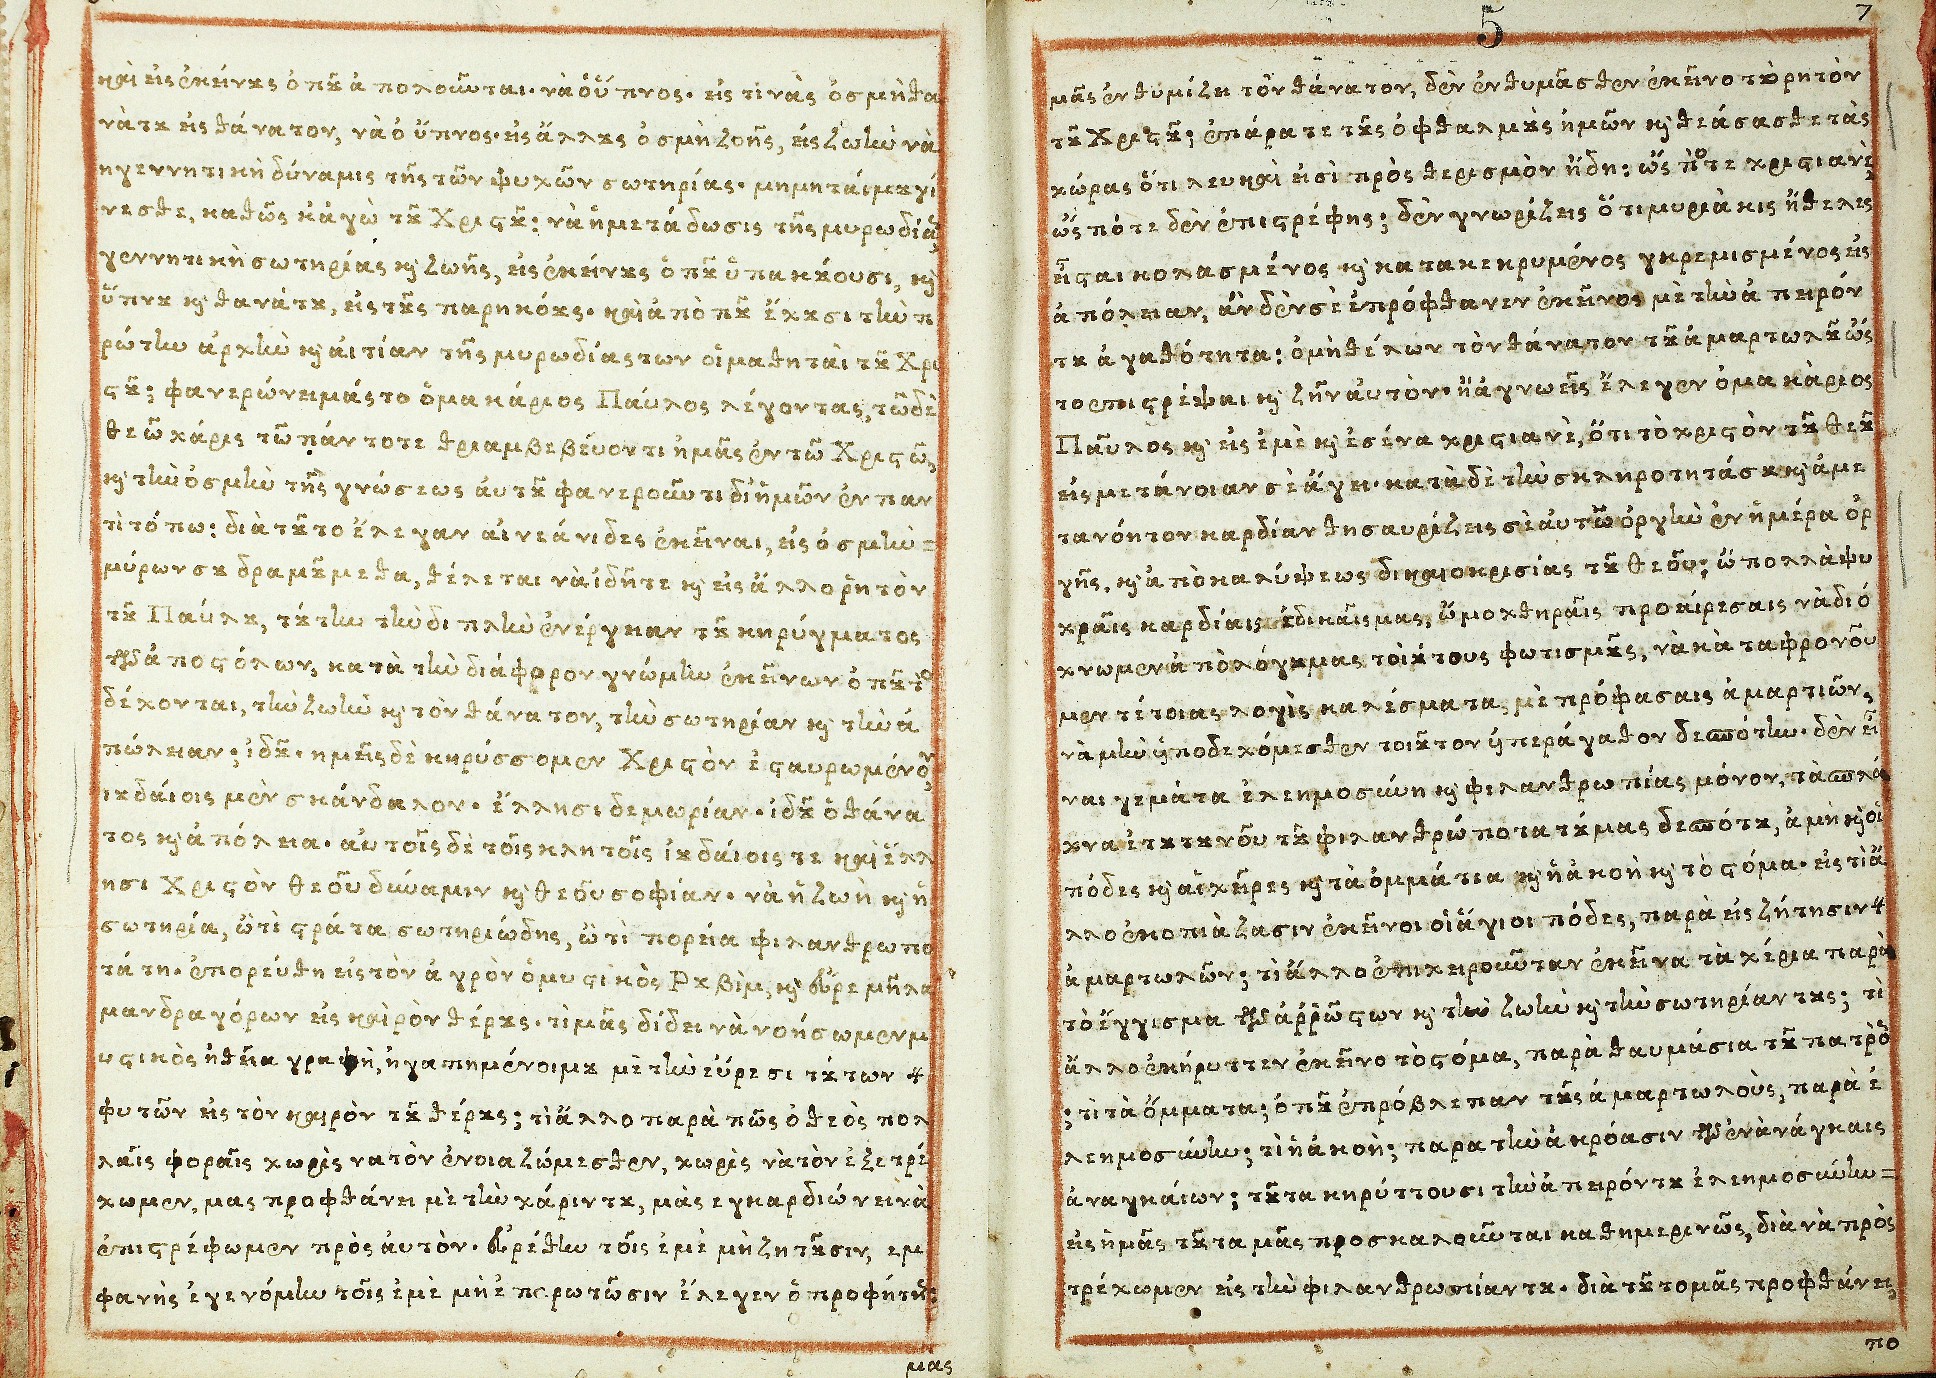 καὶ εἰς ἐκείνους ὁποῦ ἀπολοῦνται· νὰ ὁ ὕπνος· εἰς τινὰς ὀσμὴ θα
νάτου εἰς θάνατον, νὰ ὁ ὕπνος· εἰς ἄλλους ὀσμὴ ζοῆς, εἰς ζωὴν νὰ
ἡ γεννητικὴ δύναμις τῆς τῶν ψυχῶν σωτηρίας· μημηταί μου γί
νεσθε, καθῶς κἀγὼ τοῦ Χριστοῦ: νὰ ἡ μετάδωσις τῆς μυρωδίας
γεννητικὴ σωτηρίας καὶ ζωῆς, εἰς ἐκείνους ὁποῦ ὑπακκούουσι, καὶ
ὕπνου καὶ θανάτου, εἰς τοὺς παρηκόους· καὶ ἀπὸ ποῦ ἔχουσι τὴν π
ρώτην ἀρχὴν καὶ αἰτίαν τῆς μυρωδίας των οἱ μαθηταὶ τοῦ Χρι
στοῦ; φανερώνει μάς το ὁ μακάριος Παύλος λέγοντας, τῶ δὲ
θεῶ χάρις τῶ πάντοτε θριαμβεβέυοντι ἡμᾶς ἐν τῶ Χριστῶ,
καὶ τὴν ὀσμὴν τῆς γνώσεως ἀυτοῦ φανεροῦντι δἰ ἡμῶν ἐν παν
τὶ τόπω: διὰ τοῦτο ἔλεγαν αἱ νεάνιδες ἐκεῖναι, εἰς ὀσμὴν =
μύρων σου δραμοῦμεθα, θέλεται νὰ ἰδῆτε καὶ εἰς ἄλλο ῥητὸν
τοῦ Παύλου, τούτην τὴν διπλὴν ἐνέργειαν τοῦ κηρύγματος
τῶν ἀποστόλων, κατὰ τὴν διάφορον γνώμην ἐκεῖνων ὁποῦ τὸ
δέχονται, τὴν ζωὴν καὶ τὸν θάνατον, τὴν σωτηρίαν καὶ τὴν ἀ
πώλειαν; ἰδοῦ· ημεῖς δὲ κηρύσσομεν Χριστὸν ἐσταυρωμένον,
ιουδάιοις μὲν σκάνδαλον· ἔλλησι δε μωρίαν· ἰδοῦ ὁ θάνα
τος καὶ ἀπόλεια· αὐτοῖς δὲ τοῖς κλητοῖς ἰουδάιοις τε καὶ ἕλλ
ησι Χριστὸν θεοῦ δύναμιν καὶ θεοῦ σοφίαν· νὰ ἡ ζωὴ καὶ ἡ
σωτηρία, ὢ τὶ στράτα σωτηριώδης, ὢ τὶ πορεία φιλανθρωπο
τάτη· ἐπορεύθη εἰς τὸν ἀγρὸν ὁ μυστικὸς Ρουβὶμ, καὶ εὗρε μῆλα
μανδραγόρων εἰς καιρὸν θέρους· τι μᾶς δίδει νὰ νοήσωμεν μ
υστικὸς ἡ θεία γραφὴ, ἠγαπημένοι μου μὲ τὴν εύρεσι τούτων τῶν
φυτῶν εἰς τὸν καιρὸν τοῦ θέρους; τὶ ἄλλο παρὰ πῶς ὁ θεὸς πολ
λαῖς φοραῖς χωρὶς νατὸν ἐνοιαζώμεσθεν, χωρὶς νὰ τὸν ἐξετρέ
χωμεν, μας προφθάνει μὲ τὴν χάριν του, μὰς εγκαρδιώνει νὰ
ἐπιστρέφωμεν πρὸς ἀυτόν· εὑρέθην τοῖς ἐμὲ μὴ ζητοῦσιν, εμ
φανὴς ἐγενόμην τοῖς ἐμὲ μὴ ἐπερωτῶσιν ἔλεγεν ὁ προφήτης:
μας
5
7
μᾶς ἐνθυμίζει τὸν θάνατον, δὲν ἐνθυμᾶσθεν ἐκεῖνο το ρητὸν
τοῦ Χριστοῦ; ἐπάρατε τοὺς ὀφθαλμοὺς ἡμῶν καὶ θεάσασθε τὰς
χώρας ὅτι λευκαὶ εἰσὶ πρὸς θερισμὸν ἤδη: ὣς πότε χριστιανὲ,
ὣς πότε δὲν ἐπιστρέφης; δὲν γνωρίζεις ὅτι μυριάκις ἤθελες
εῖσται κολασμένος καὶ κατακεκρυμένος γκρεμισμένος εἰς
ἀπόλειαν, ἂν δὲν σὲ ἐπρόφθανεν ἐκεῖνος μὲ τὴν ἀπειρόν
του ἀγαθότητα: ὁ μὴ θέλων τὸν θάνατον τοῦ ἁμαρτωλοῦ ὡς
το επιστρέψαι καὶ ζῆν ἀυτὸν· ἢ ἀγνωεῖς ἔλεγεν ὁ μακὰριος
Παῦλος καὶ εἰς ἐμὲ καὶ ἐσένα χριστιανὲ, ὅτι τὸ χριστὸν τοῦ θεοῦ
εἰς μετάνοιαν σὲ ἄγει· κατὰ δὲ τὴν σκληροτητά σου καὶ ἀμε
τανόητον καρδίαν θησαυρίζεις σὲ ἀυτῶ ὀργὴν ἐν ἡμέρα ὀρ
γῆς, καὶ ἀποκαλύψεως δικαιοκρισίας τοῦ θεοῦ; ὢ πολλὰ ψυ
χραῖς καρδίαις ἐδικαῖς μας, ὢ μοχθηραῖς προαίρεσαις νὰ διό
χνωμεν ἀπὸ λόγου μας τοιούτους φωτισμοὺς, νὰ κὰταφρονοῦ
μεν τέτοιας λογὶς καλέσματα, μὲ πρόφασαις ἁμαρτιῶν,
νὰ μὴν ὑποδεχόμεσθεν τοιοῦτον ὑπεράγαθον δεσπότην· δὲν εἶ
ναι γεμάτα ἐλεημοσύνη καὶ φιλανθρωπίας μόνον, τὰ σπλά
χνα ἐτουτουνοῦ τοῦ φιλανθρώποτατού μας δεσπότου, ἀμὴ καὶ οἱ
πόδες καὶ αἱ χεῖρες καὶ τὰ ὀμμάτια καὶ ἡ ἀκοὴ καὶ τὸ στόμα· εἰς τὶ ἄ
λλο ἐκοπιάζασιν ἐκεῖνοι οἱ ἅγιοι πόδες, παρὰ εἰς ζήτησιν τῶν
ἁμαρτωλῶν; τὶ ἄλλο ἐπιχειροῦνταν ἐκεῖνα τὰ χέρια παρὰ
τὸ ἔγγισμα τῶν ἀῤῥώστων καὶ τὴν ζωὴν καὶ τὴν σωτηρίαν τους; τὶ
ἄλλο ἐκήρυττεν ἐκεῖνο τὸ στόμα, παρὰ θαυμάσια τοῦ πατρὸς
; τι τὰ ὄμματα; ὁποῦ ἐπρόβλεπαν τοὺς ἁμαρτωλοὺς, παρὰ ἐ
λεημοσύνην; τὶ ἡ ἀκοὴ; παρα τὴν ἀκρόασιν τῶν ἐν ἀνάγκαις
ἀναγκαίων; τοῦτα κηρύττουσι τὴν ἀπειρόν του ἐλεημοσύνην =
εἰς ἡμᾶς τοῦτα μᾶς προσκαλοῦνται καθημερινῶς, διὰ νὰ πρὸς
τρέχωμεν εἰς τὴν φιλανθρωπίαν του· διὰ τοῦτο μᾶς προφθάνει,
πο